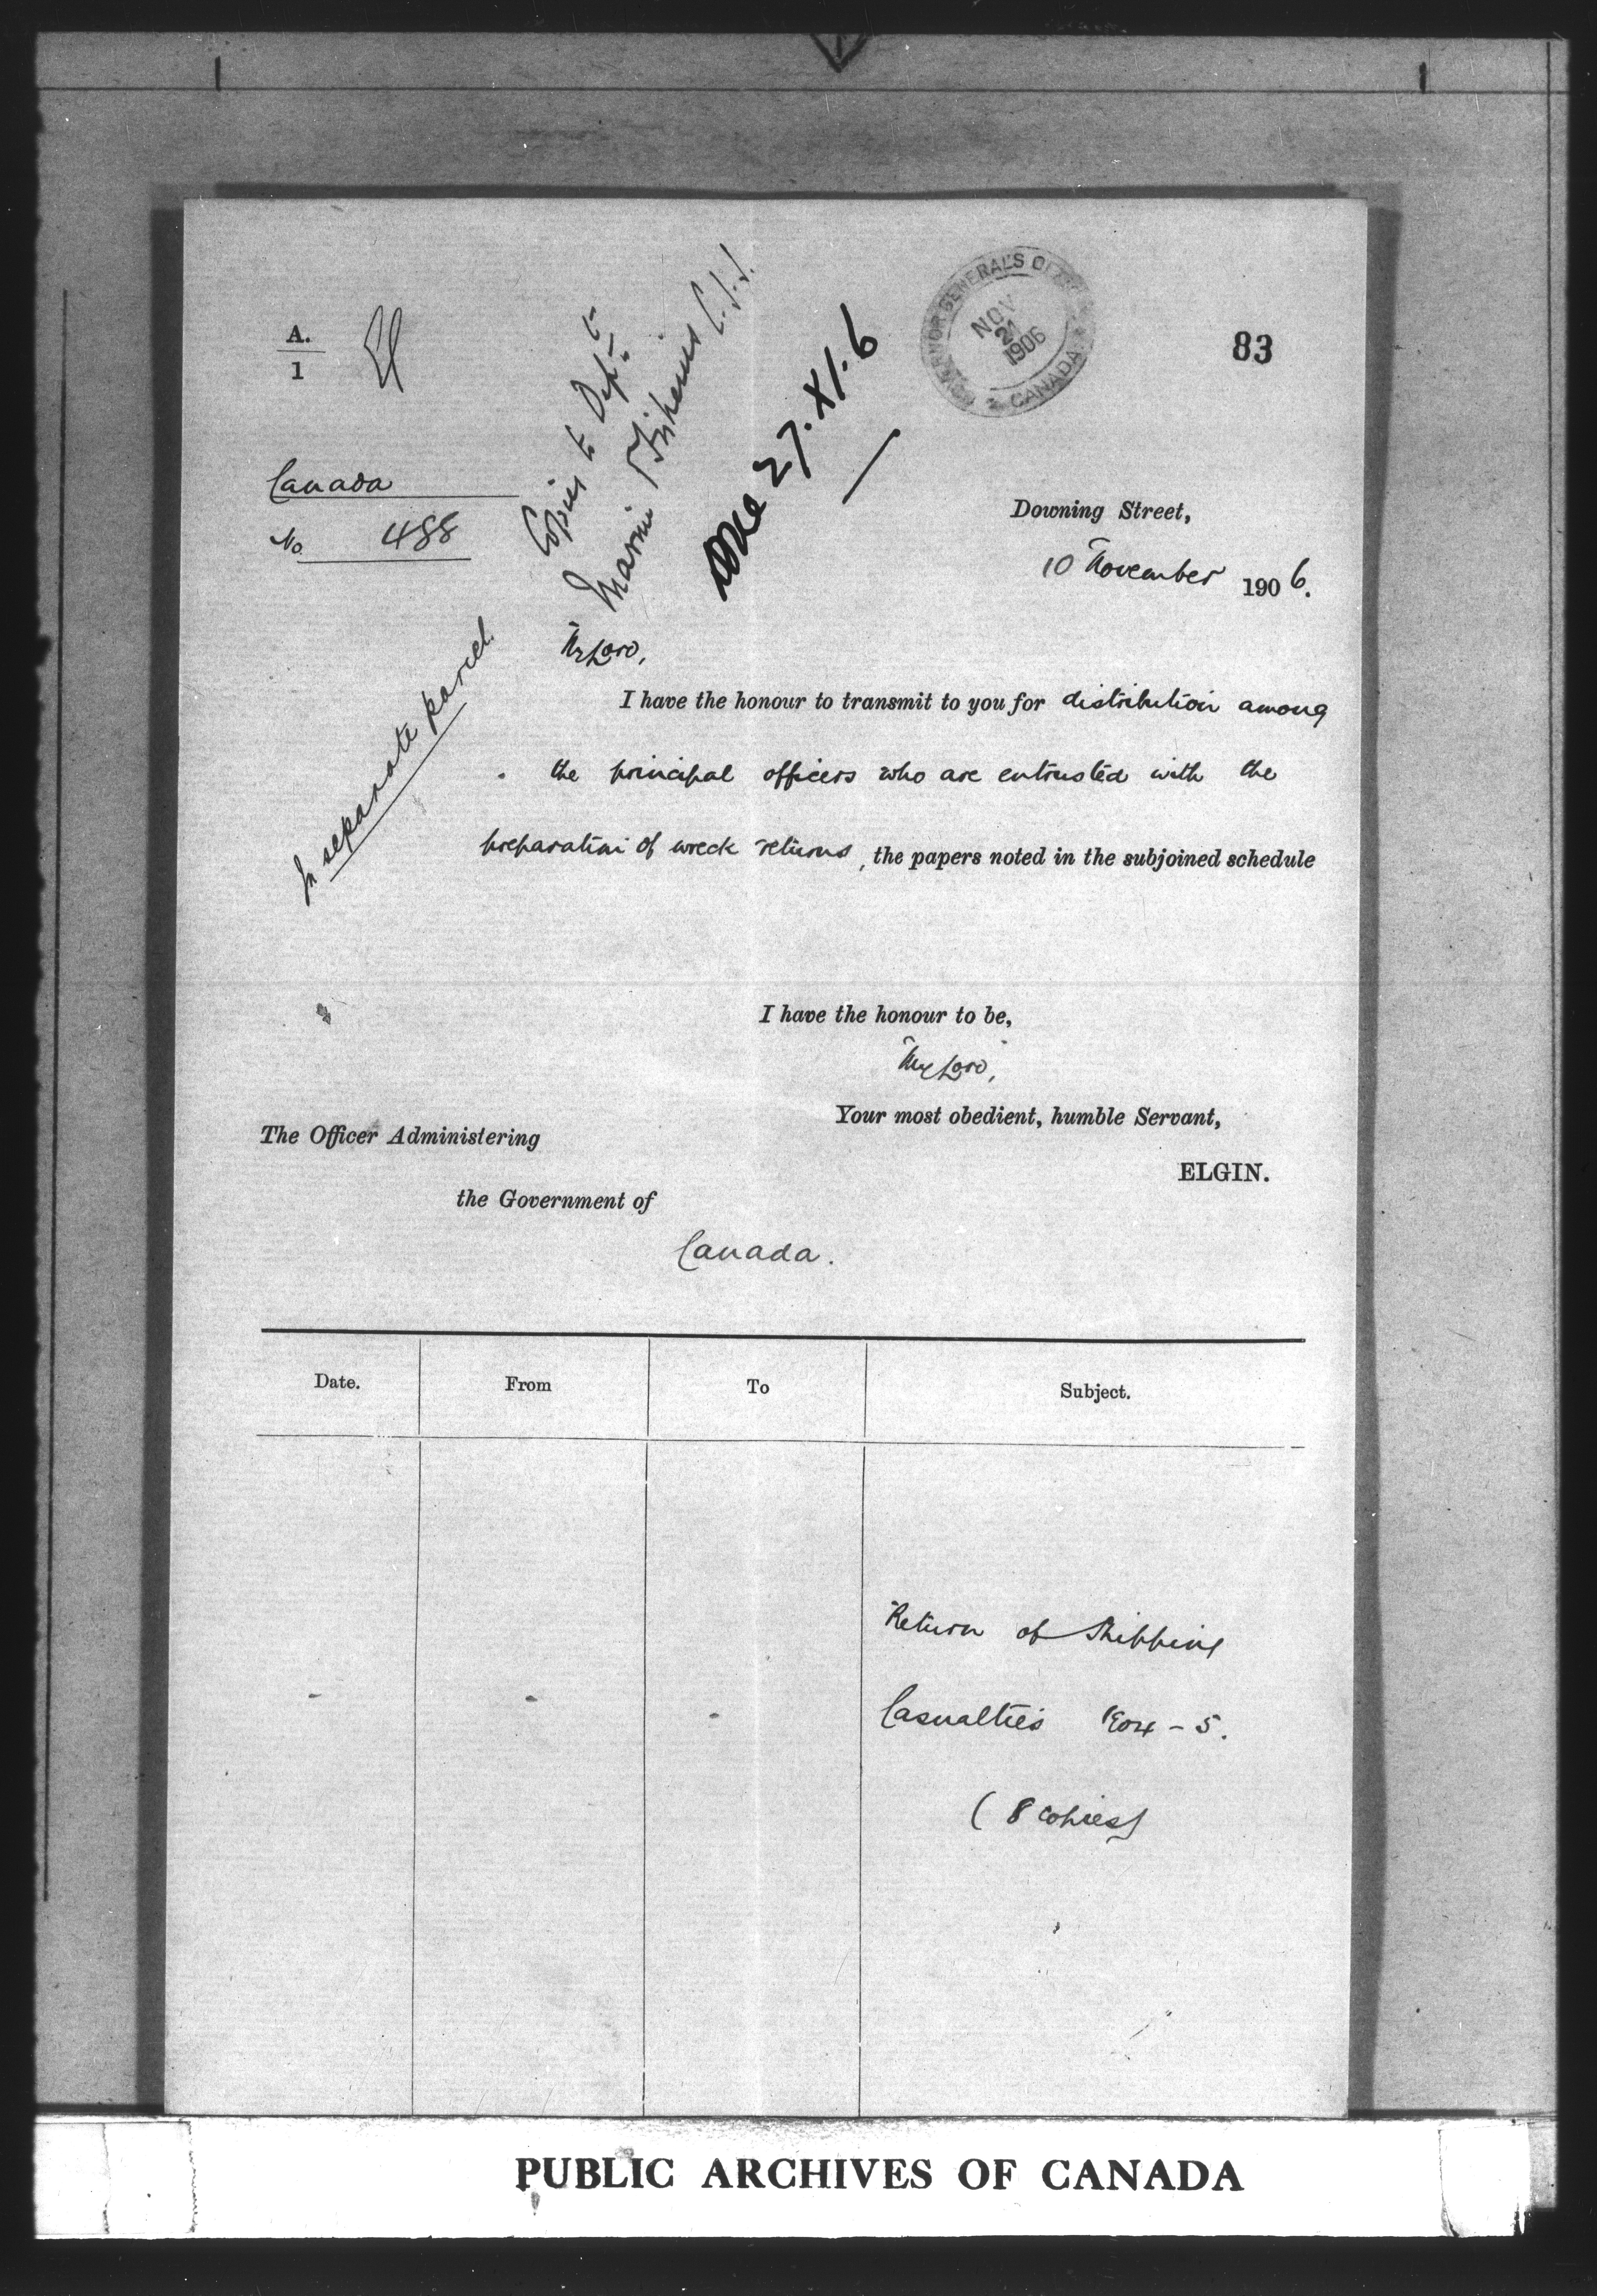 A.
1
83
GOVERNOR GENERAL'S OFFICE
NOV
21
1906
CANADA
Copies to Dept. of
Marine & Fisheries
27.XI.6
Canada
No 488
Downing Street,
10 November 1906.
In separate parcel.
My Lord,
I have the honour to transmit to you for distribution among
the principal officers who are entrusted with the
preparation of wreck returns, the papers noted in the subjoined schedule
I have the honour to be,
My Lord,
Your most obedient, humble Servant,
ELGIN.
The Officer Administering
the Government of
Canada.
Date. From To Subject.
Return of Shipping
- - - Casualties 1904-5.
(8 copies)
PUBLIC ARCHIVES OF CANADA